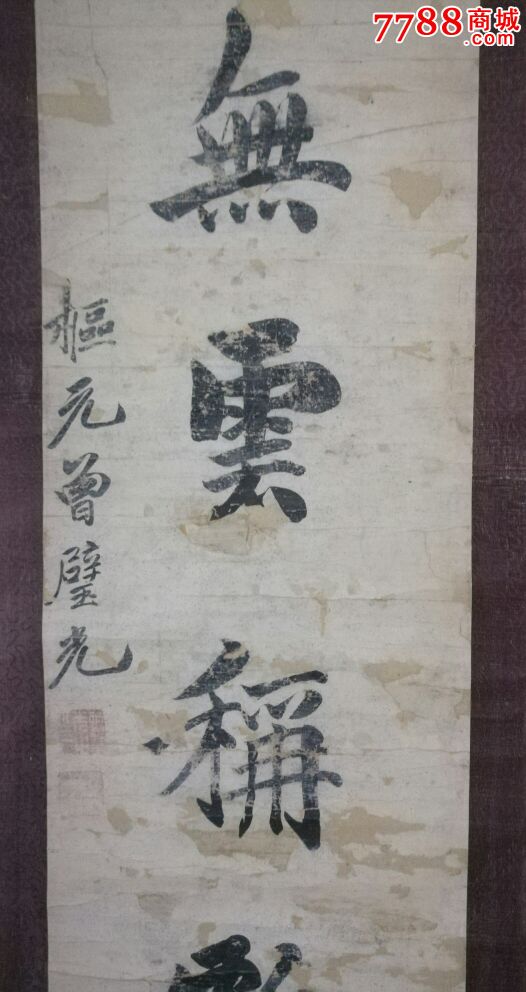 7788商城
.com
無雲稱
樞元曾璧光